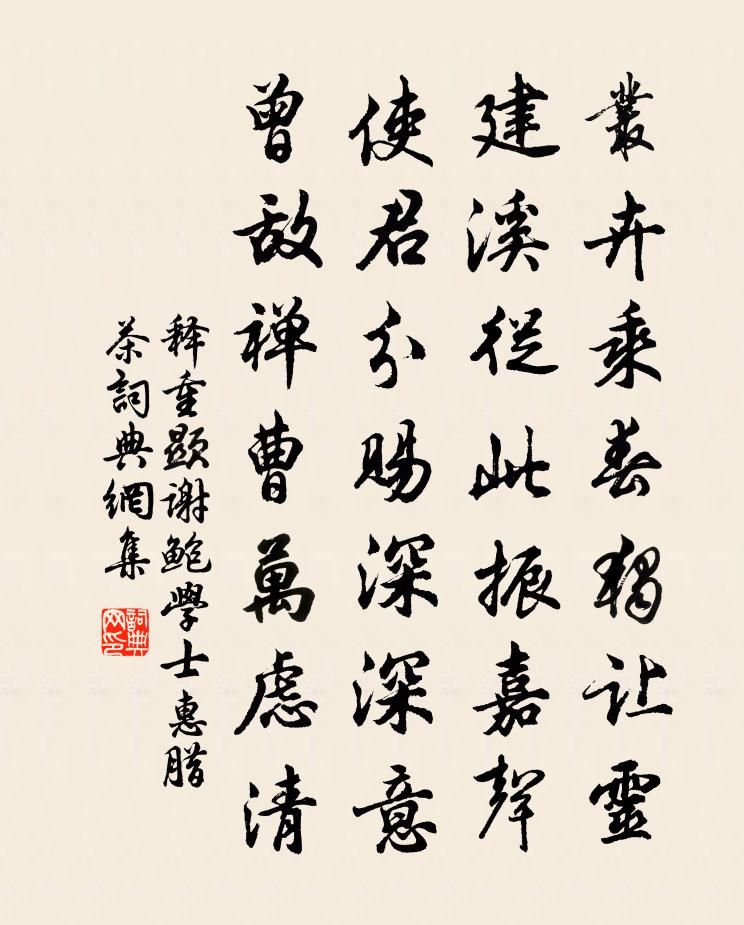 叢卉乘春獨让靈
建溪從此振嘉聲
使君分賜深深意
曾敌禅曹萬慮清
释重顯谢鲍學士惠腊
茶詞典網集
詞典网印